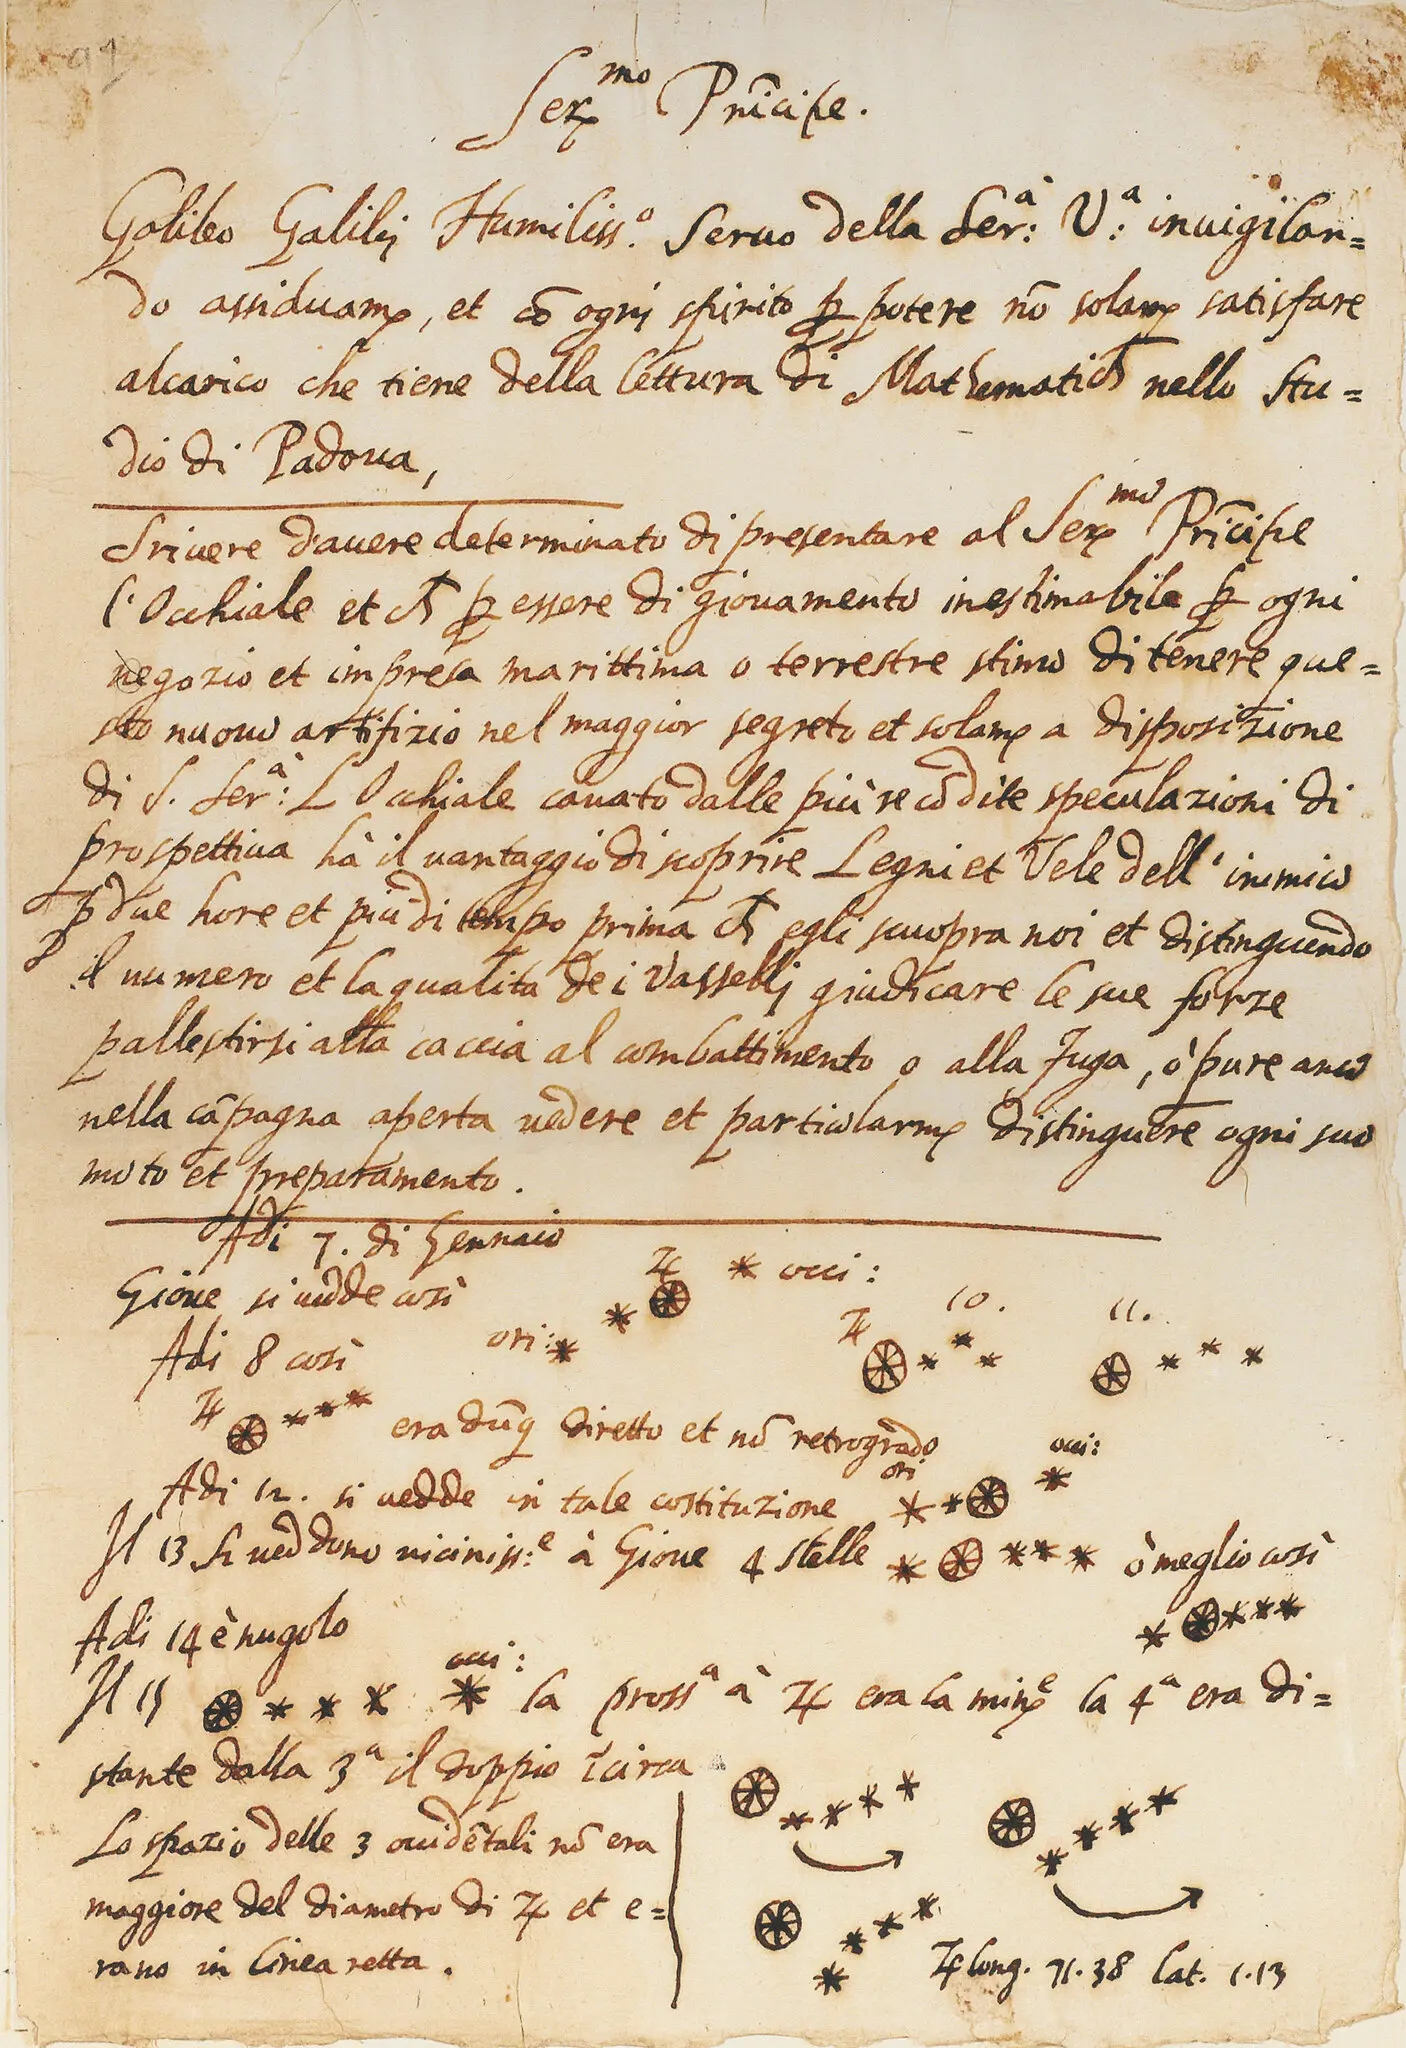 91
Ser.mo Prĩcipe.
Galileo Galilej Humiliss.º Seruo della Ser:à V:a inuigilan=
do assiduam.e, et cõ ogni spirito p potere nõ solam.e satisfare
alcarico che tiene della lettura di Mathematich nello stu=
dio di Padoua,
Sriuere d'auere determinato di presentare al Ser.mo Prĩcipe
l'Occhiale et ch p essere di giouamento inestimabile p ogni
negozio et impresa marittima o terrestre stimo di tenere que=
sto nuouo artifizio nel maggior segreto et solam.e a disposizione
di S. Ser:à L'Occhiale cauato dalle più recõdite speculazioni di
prospettiua hà il uantaggio di scoprire Legni et Vele dell' inimico
p due hore et più di tempo prima ch egli scuopra noi et distinguendo
il numero et la qualita de i Vasselli giudicare le sue forze
pallestirsi alla caccia al combattimento o alla fuga, ò pure anco
nella cãpagna aperta uedere et particolarm.e distinguere ogni suo
moto et preparamento.
Adi 7. di Gennaio
Gioue si uedde così ♃ occi:
Adi 8 così ori: ♃ 10. 11.
♃ era dũq diretto et nõ retrogrado
Adi 12. si uedde in tale costituzione ori occi:
Il 13 si ueddono uiciniss:e à Gioue 4 stelle ò meglio così
Adi 14 è nugolo
Il 15 occi: la pross.a à ♃ era la min.e la 4.a era di=
stante dalla 3.a il doppio ĩcirca
Lo spazio delle 3 ouidẽtali nõ era
maggiore del diametro di ♃ et e=
rano in linea retta.
♃ long. 71.38 lat. 1.13